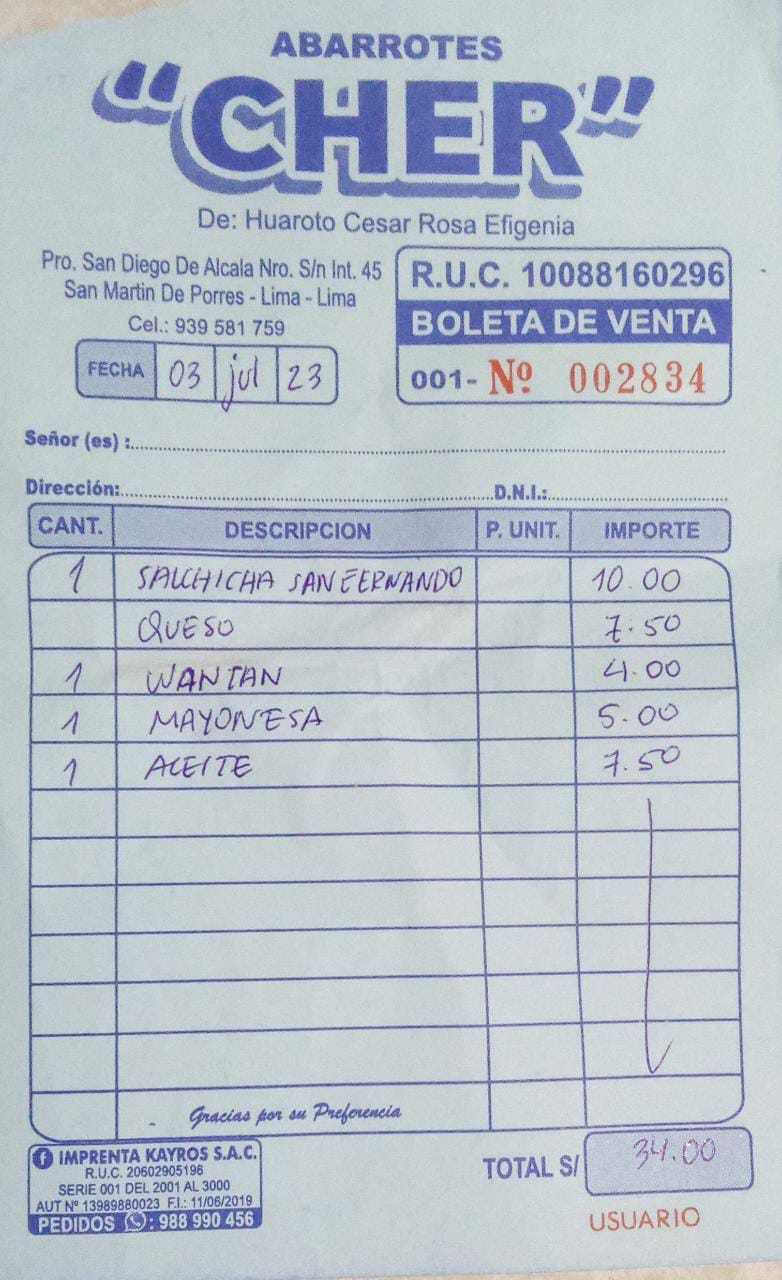 ABARROTES
"CHER"
De: Huaroto Cesar Rosa Efigenia
Pro. San Diego De Alcala Nro. S/n Int. 45
San Martin De Porres - Lima - Lima
Cel.: 939 581 759
R.U.C. 10088160296
BOLETA DE VENTA
001- Nº 002834
FECHA 03 jul 23
Señor (es) :
Dirección: D.N.I.:
CANT. DESCRIPCION P. UNIT. IMPORTE
1 SALCHICHA SAN FERNANDO 10.00
QUESO 7.50
1 WANTAN 4.00
1 MAYONESA 5.00
1 ACEITE 7.50
Gracias por su Preferencia
IMPRENTA KAYROS S.A.C.
R.U.C. 20602905196
SERIE 001 DEL 2001 AL 3000
AUT Nº 13989880023 F.I.: 11/06/2019
PEDIDOS : 988 990 456
TOTAL S/ 34.00
USUARIO